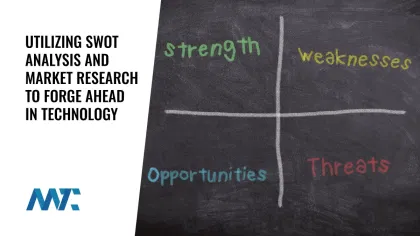 UTILIZING SWOT
ANALYSIS AND
MARKET RESEARCH
TO FORGE AHEAD
IN TECHNOLOGY
strength
weaknesses
Opportunities
Threats